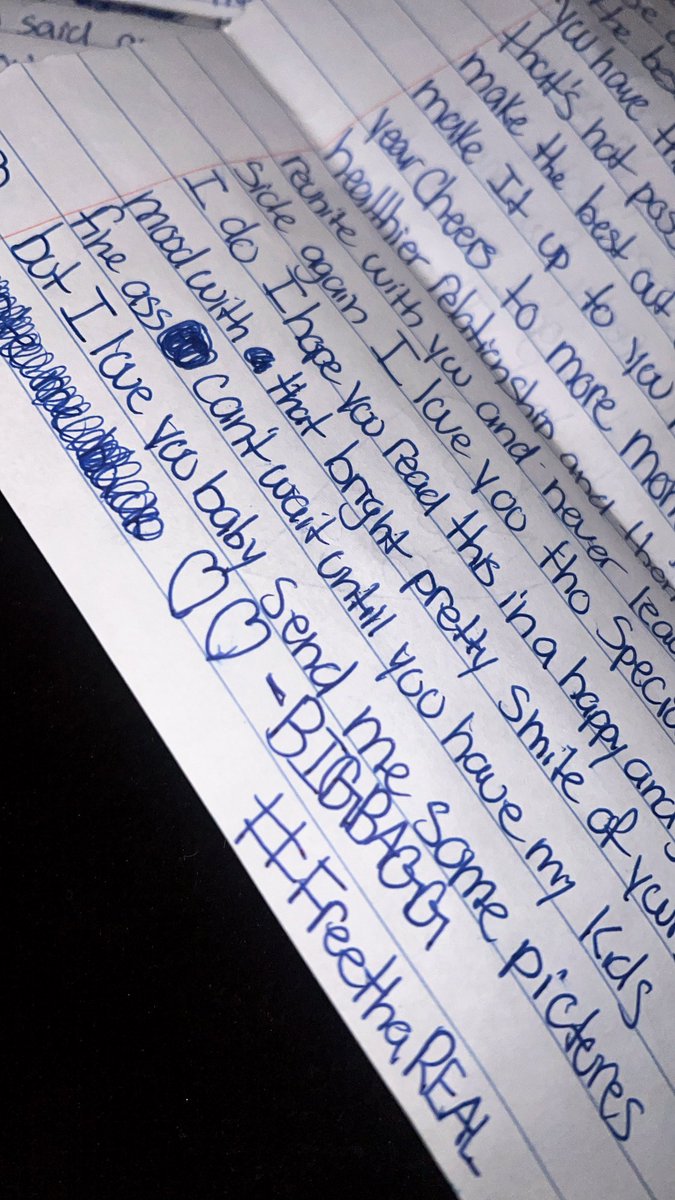 said
the best
you have
that's not
make the best out
make It up to you
year Cheers to more
healthier relationship and
reunite with you and never
side again I love you tho
I do I hope you read this in a happy and
mood with that bright pretty smile of your
fine ass can't wait untill you have my kids
but I love you baby Send me some pictures
♡♡ -BIGBAGG
#FreethaREAL